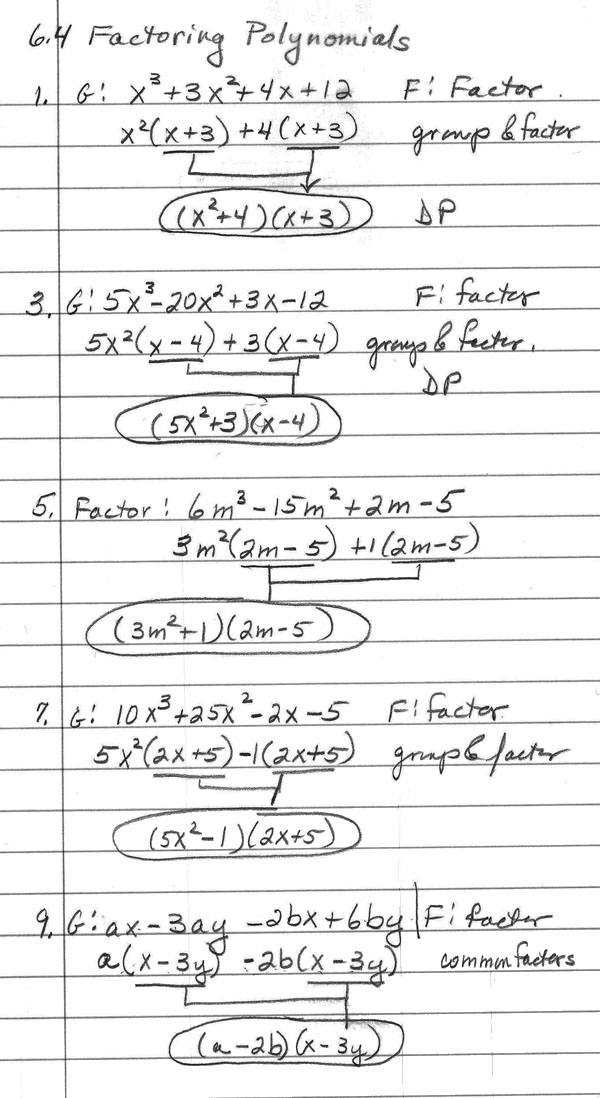 6.4 Factoring Polynomials
1. G: x³+3x²+4x+12 F: Factor.
x²(x+3)+4(x+3) group & factor
(x²+4)(x+3) DP
3. G: 5x³-20x²+3x-12 F: factor
5x²(x-4)+3(x-4) group & factor.
DP
(5x²+3)(x-4)
5. Factor: 6m³-15m²+2m-5
3m²(2m-5)+1(2m-5)
(3m²+1)(2m-5)
7. G: 10x³+25x²-2x-5 F: factor.
5x²(2x+5)-1(2x+5) group & factor
(5x²-1)(2x+5)
9. G: ax-3ay-2bx+6by F: factor
a(x-3y)-2b(x-3y) common factors
(a-2b)(x-3y)